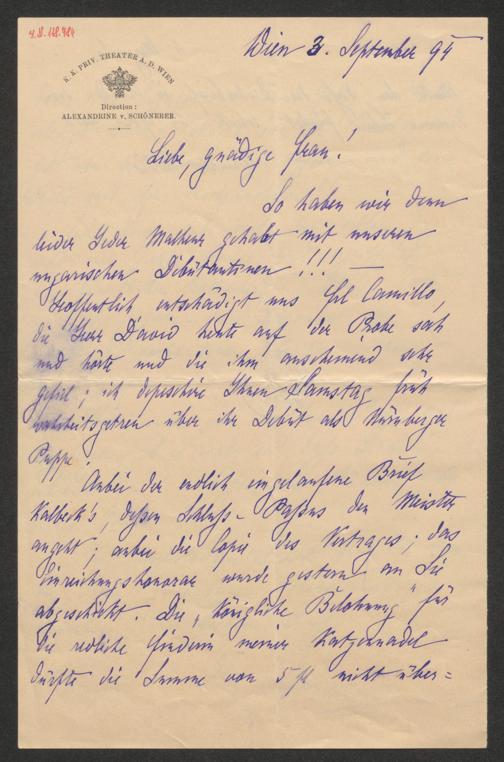 K. K. PRIV. THEATER A. D. WIEN
Direction:
ALEXANDRINE v. SCHÖNERER.
Wien 3. September 95
Liebe, gnädige Frau!
So haben wir denn
leider Jeder Malheur gehabt mit unseren
ungarischen Debütantinen!!! —
Hoffentlich entschädigt uns Frl Camillo,
die Herr David heute auf der Probe sah
und hörte und die ihm anscheinend sehr
gefiel; ich depeschire Ihnen Samstag früh
wahrheitsgetreu über ihr Debüt als Nürnberger
Puppe.
Anbei der endlich eingelaufene Brief
Kalbeck's, dessen Schluss-Passus den Meister
angeht; anbei die Copie des Vertrages; das
Einreichungshonorar wurde gestern an Sie
abgeschickt. Die „Königliche Belohnung" für
die redliche Finderin meiner
dürfte die Summe von 5 fl nicht über=